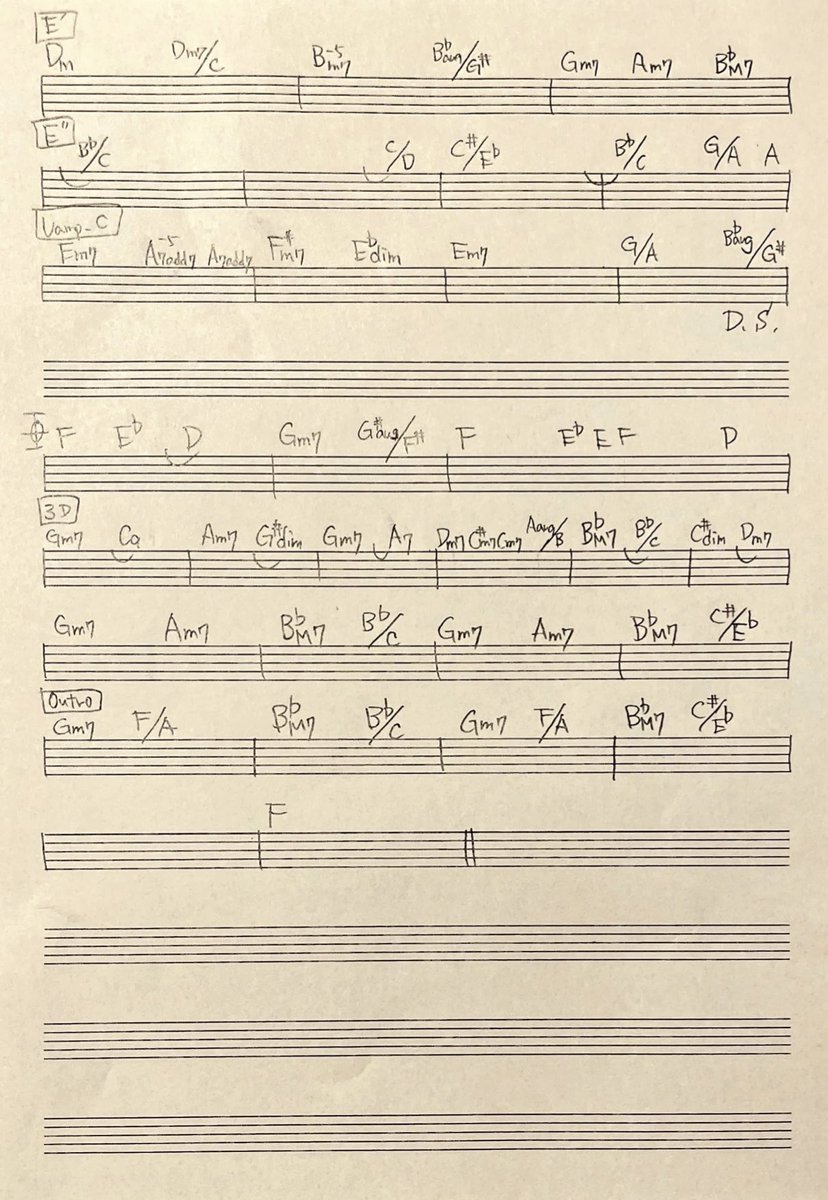 E'
Dm Dm7/C Bm7-5 B♭aug/G# Gm7 Am7 B♭M7
E"
B♭/C C/D C#/E♭ B♭/C G/A A
Vamp-C
Em7 A7add7-5 A7add7 F#m7 E♭dim Em7 G/A B♭aug/G#
D.S.
F E♭ D Gm7 G#aug/F# F E♭ E F D
3D
Gm7 Am7 G#dim Gm7 A7 Dm7 C#m7 Cm7 Aaug/B B♭M7 B♭/C C#dim Dm7
Gm7 Am7 B♭M7 B♭/C Gm7 Am7 B♭M7 C#/E♭
Outro
Gm7 F/A B♭M7 B♭/C Gm7 F/A B♭M7 C#/E♭
F